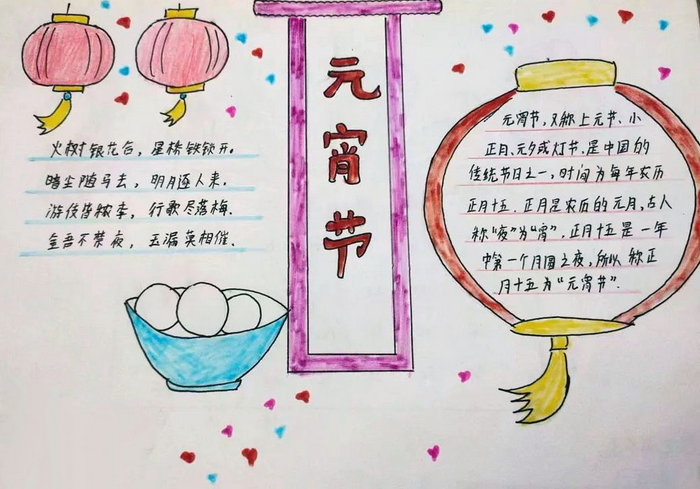 元宵节
火树银花合，星桥铁锁开。
暗尘随马去，明月逐人来。
游伎皆秾李，行歌尽落梅。
金吾不禁夜，玉漏莫相催。
元宵节，又称上元节、小
正月、元夕或灯节，是中国的
传统节日之一，时间为每年农历
正月十五．正月是农历的元月，古人
称“夜”为“宵”，正月十五是一年
中第一个月圆之夜，所以称正
月十五为“元宵节”．